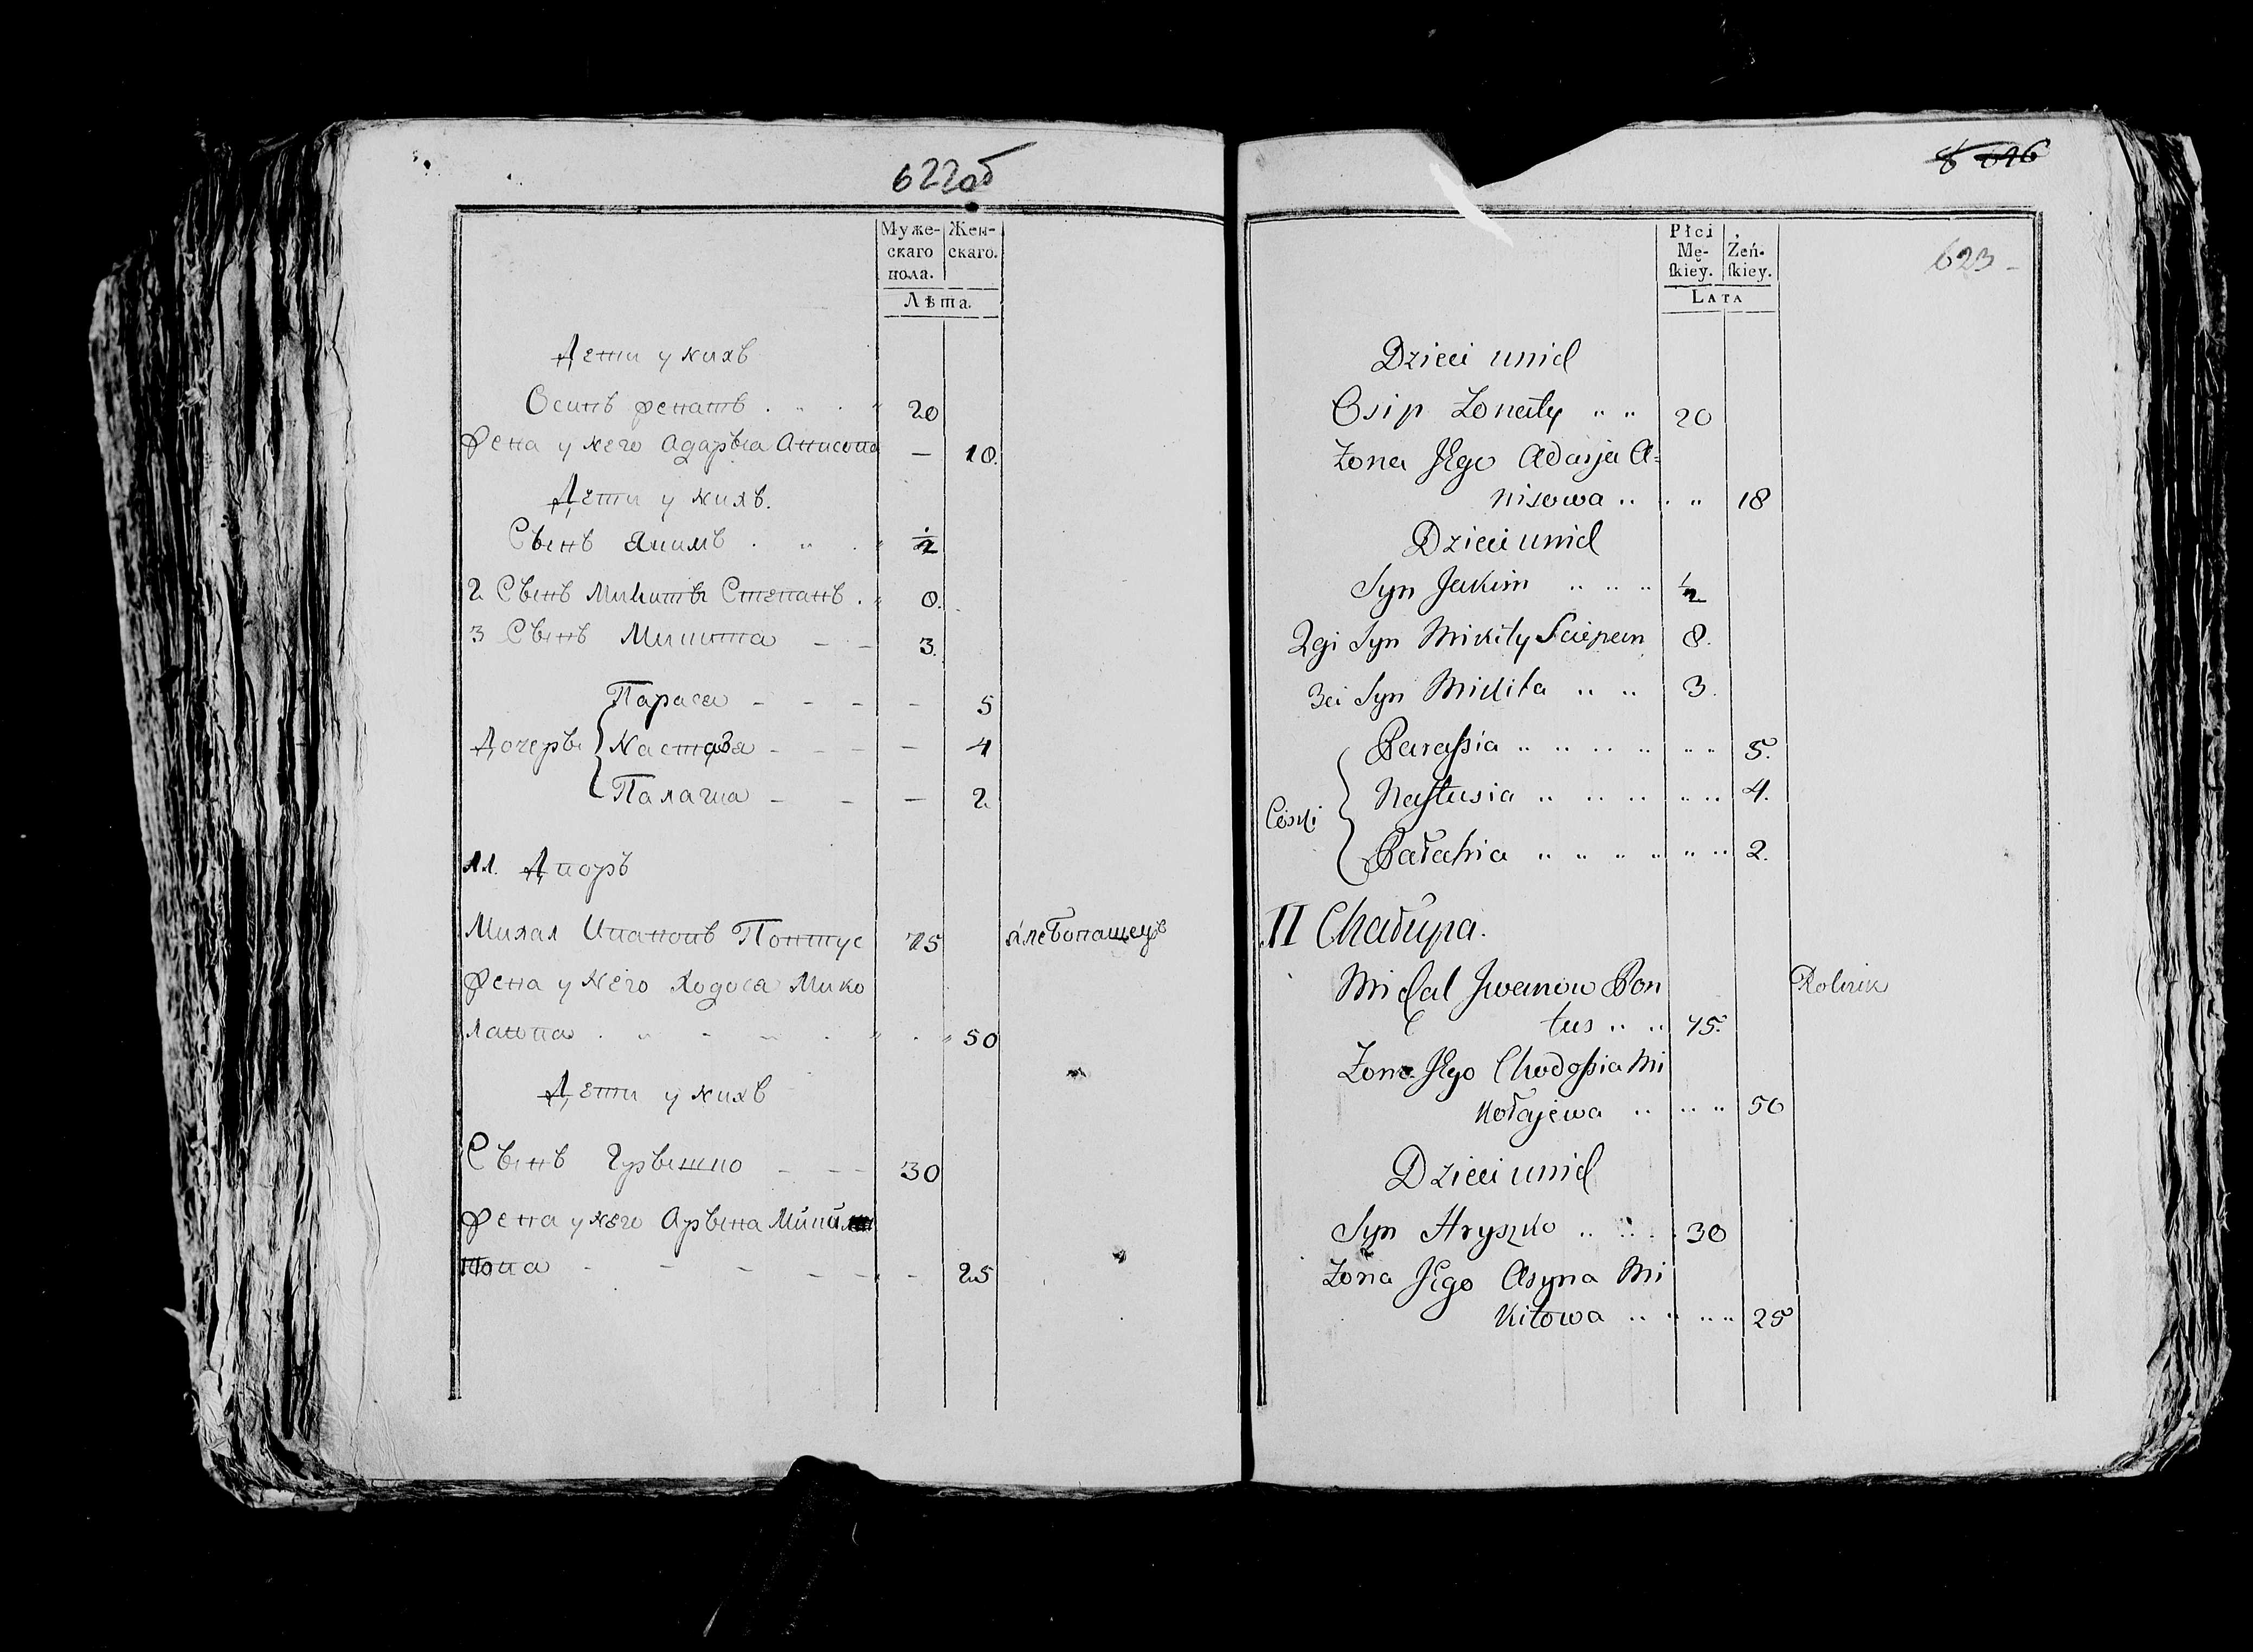 622об
Муже-
скаго
пола.
Жен-
скаго.
Лѣта.
Дети у нихъ
Осипъ женатъ 20
Жена у него Адарьıа Анисова — 10.
Дети у нихъ.
Сынъ Якимъ ½
2 Сынъ Микиты Степанъ 0.
3 Сынъ Микита — — 3.
Параса — — — — 5
Дочерьı Настазя — — — — 4
Палагıа — — — 2
11. Дворъ
Михал Ивановъ Понтус 75 хлебопашецъ
Жена у него Ходоса Мико
лаıова 50
Дети у нихъ
Сынъ Грышко — — — 30
Жена у него Арына Мики
това — — — — — — 25
623
Płci
Mę-
ſkiey.
Żeń-
ſkiey.
LATA
Dzieci unich
Osip Zonaty 20
Zona Jego Adarja A=
nisowa 18
Dzieci unich
Syn Jakim ½
2gi Syn Mikity Sciepan 8.
3ci Syn Mikita 3.
Paraſsia 5.
Naſtusia 4.
Córki
Pałahia 2.
II Chałupa.
Michal Jwanow Pon Rolnik
tus 75.
Zona Jego Chodoſsia Mi
kołajewa 50
Dzieci unich
Syn Hryszko 30
Zona Jego Aryna Mi
kitowa 25